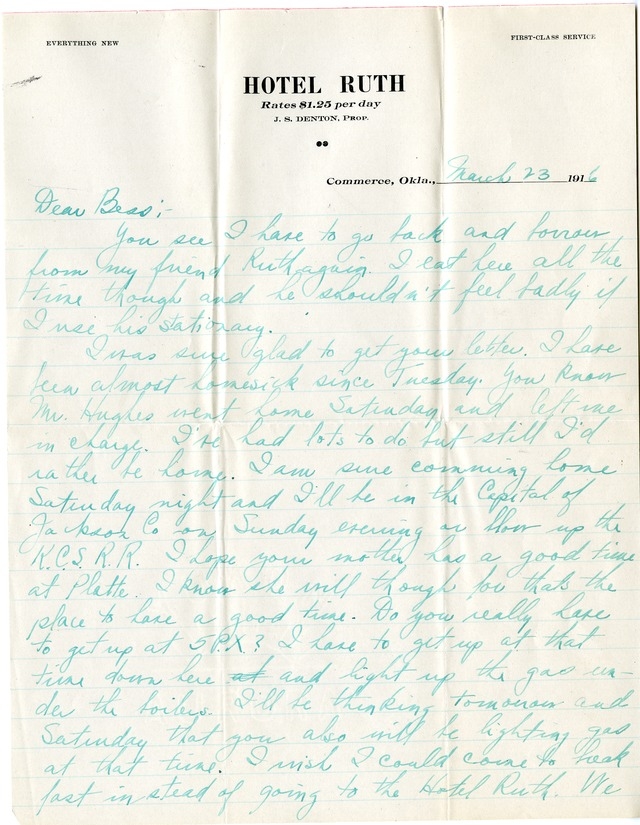 EVERYTHING NEW
FIRST-CLASS SERVICE
HOTEL RUTH
Rates $1.25 per day
J. S. DENTON, PROP.
Commerce, Okla., March 23 1916
Dear Bess;-
You see I have to go back and borrow
from my friend Ruth again. I eat here all the
time though and he shouldn't feel badly if
I use his stationary.
I was sure glad to get your letter. I have
been almost homesick since Tuesday. You know
Mr. Hughes went home Saturday and left me
in charge. I've had lots to do but still I'd
rather be home. I am sure comming home
Saturday night and I'll be in the Capital of
Jackson Co on Sunday evening or blow up the
K.C.S. R.R. I hope your mother has a good time
at Platte. I know she will though for that's the
place to have a good time. Do you really have
to get up at 5 P.X.? I have to get up at that
time down here at and light up the gas un-
der the boilers. I'll be thinking tomorrow and
Saturday that you also will be lighting gas
at that time. I wish I could come to break
fast instead of going to the Hotel Ruth. We